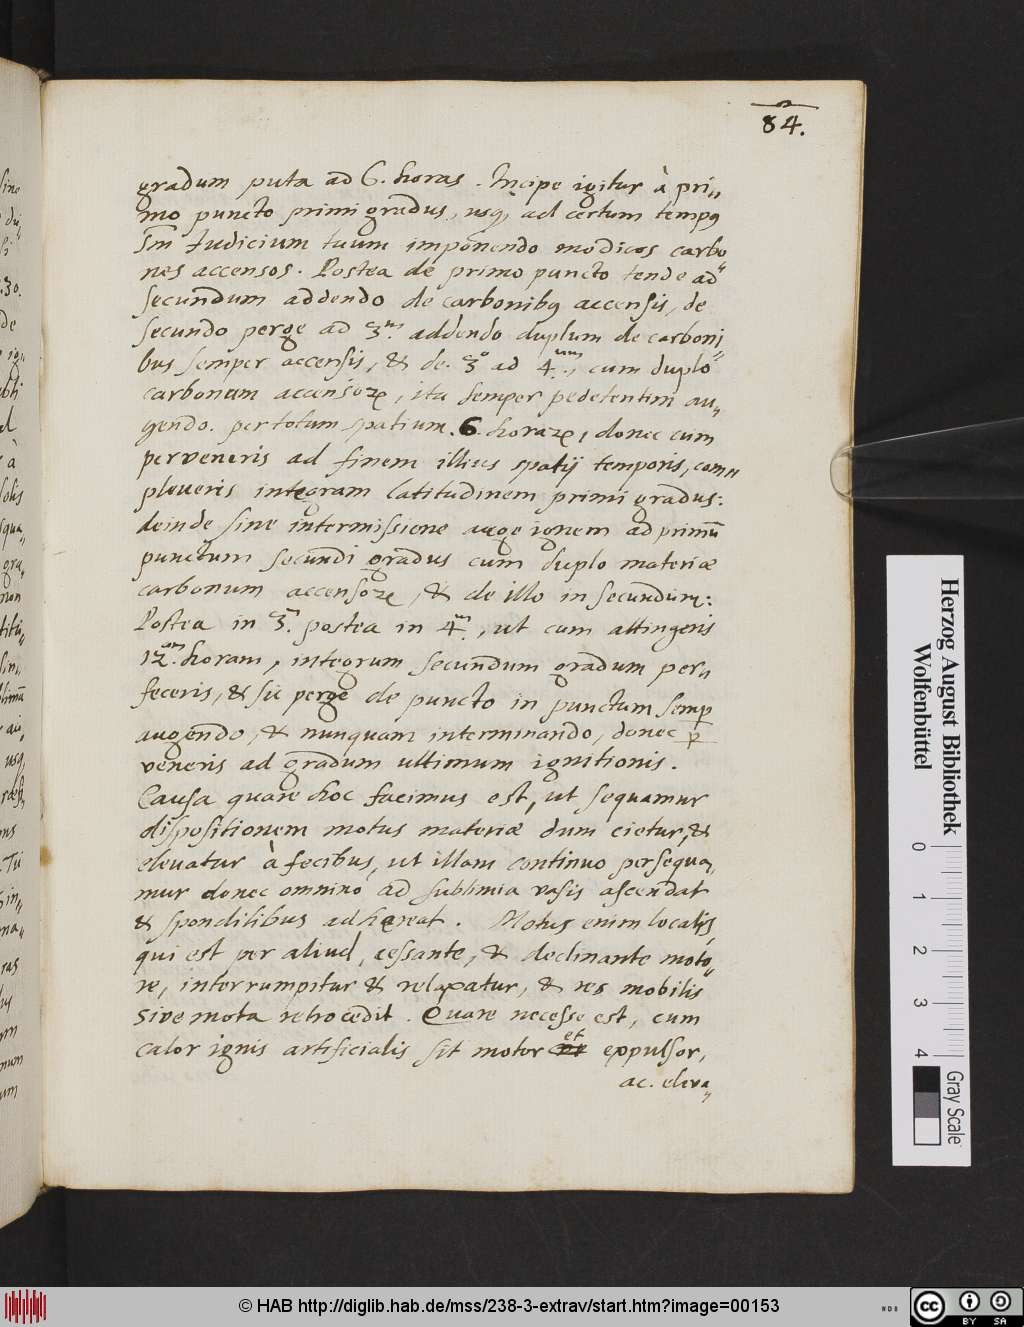 84.
gradum puta ad 6. horas. Incipe igitur à pri„
mo puncto primi gradus, usq, ad certum tempq
Sm Judicium tuum imponendo modicos carbo„
nes accensos. Postea de primo puncto tende ad
secundum addendo de carbonibq accensis, de
secundo perge ad 3m. addendo duplum de carboni„
bus semper accensis, & de. 3o ad 4um., cum duplo
carbonum accensoꝝ, ita semper pedetentim au„
gendo. per totum spatium. 6. horaꝝ, donec cum
perveneris ad finem illius spatij temporis, com„
pleveris integram latitudinem primi gradus:
deinde sine intermissione auge ignem ad primū
punctum secundi gradus cum duplo materiæ
carbonum accensoꝝ, & de illo in secundum:
Postea in 3m. postea in 4m., ut cum attingeris
12am. horam, integrum secundum gradum per„
feceris, & sic perge de puncto in punctum semꝑ
augendo, & nunquam interminando, donec ꝑ
veneris ad gradum ultimum ignitionis.
Causa quare hoc facimus est, ut sequamur
dispositionem motus materiæ dum cietur, &
elevatur à fecibus, ut illam continuo persequa„
mur donec omnino ad sublimia vasis ascendat
& spondilibus adhereat. Motus enim localis,
qui est per aliud, cessante, & declinante moto„
re, interrumpitur & relaxatur, & res mobilis
sive mota retrocedit. Quare necesse est, cum
calor ignis artificialis sit motor et expulsor,
ac. eleva„
Herzog August Bibliothek
Wolfenbüttel
0 1 2 3 4
Gray Scale
© HAB http://diglib.hab.de/mss/238-3-extrav/start.htm?image=00153
cc BY SA